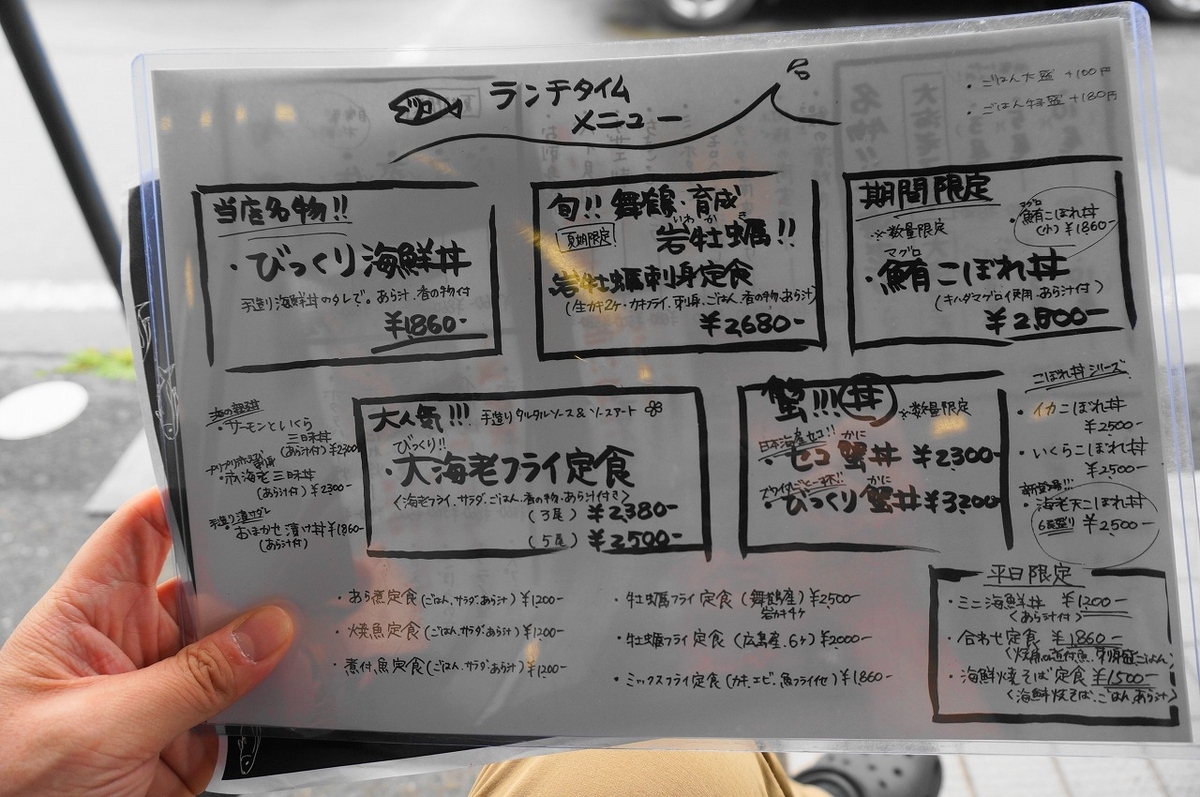 ランチタイム
メニュー
・ごはん大盛 +100円
・ごはん特盛 +180円
当店名物!!
・びっくり海鮮丼
手造り海鮮丼のタレで。あら汁、香の物付
¥1860-
旬!! 舞鶴・育成
夏期限定
いわがき
岩牡蠣!!
岩牡蠣刺身定食
(生カキ2ケ・カキフライ、刺身、ごはん、香の物、あら汁)
¥2680-
期間限定
※数量限定
マグロ
・鮪こぼれ丼
(小) ¥1860-
マグロ
・鮪こぼれ丼
(キハダマグロイ使用・あら汁付)
¥2,800-
海の親子丼
・サーモンといくら
三昧丼
(あら汁付) ¥2300-
・赤海老三昧丼
(あら汁付) ¥2300-
手造り漬けダレ
・おまかせ漬け丼 ¥1860-
(あら汁付)
大人気!!! 手造りタルタルソース&ソースアート
びっくり!!
・大海老フライ定食
(海老フライ、サラダ、ごはん、香の物、あら汁付き)
(3尾) ¥2,380-
(5尾) ¥2500-
蟹!!!丼 ※数量限定
日本海産セコ!!
かに
・セコ蟹丼 ¥2300-
ズワイガニ一杯!!
かに
・びっくり蟹丼 ¥3200-
こぼれ丼シリーズ
・イカこぼれ丼
¥2500-
・いくらこぼれ丼
¥2500-
新登場!!!
・海老天こぼれ丼
6尾盛り ¥2500-
・あら煮定食 (ごはん、サラダ、あら汁) ¥1200-
・焼魚定食 (ごはん、サラダ、あら汁) ¥1200-
・煮付魚定食 (ごはん、サラダ、あら汁) ¥1200-
・牡蠣フライ定食 (舞鶴産) ¥2500-
岩カキ4ケ
・牡蠣フライ定食 (広島産、6ケ) ¥2000-
・ミックスフライ定食 (カキ、エビ、魚フライ付) ¥1860-
平日限定
・ミニ海鮮丼 ¥1200-
(あら汁付)
・合わせ定食 ¥1860-
・海鮮焼そば定食 ¥1500-
(海鮮焼そば、ごはん、あら汁)